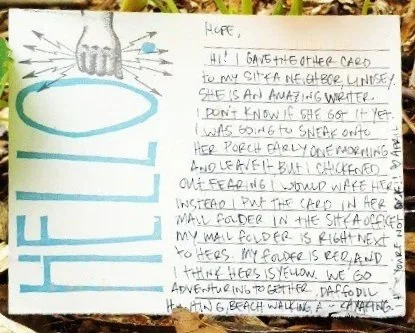 HELLO
HOPE,
HI! I GAVE THE OTHER CARD
TO MY SITKA NEIGHBOR, LINDSEY.
SHE IS AN AMAZING WRITER.
I DON'T KNOW IF SHE GOT IT YET.
I WAS GOING TO SNEAK ONTO
HER PORCH EARLY ONE MORNING
AND LEAVE IT BUT I CHICKENED
OUT FEARING I WOULD WAKE HER.
INSTEAD I PUT THE CARD IN HER
MAIL FOLDER IN THE SITKA OFFICE.
MY MAIL FOLDER IS RIGHT NEXT
TO HERS. MY FOLDER IS RED, AND
I THINK HERS IS YELLOW. WE GO
ADVENTURING TOGETHER. DAFFODIL
HUNTING, BEACH WALKING, KAYAKING.